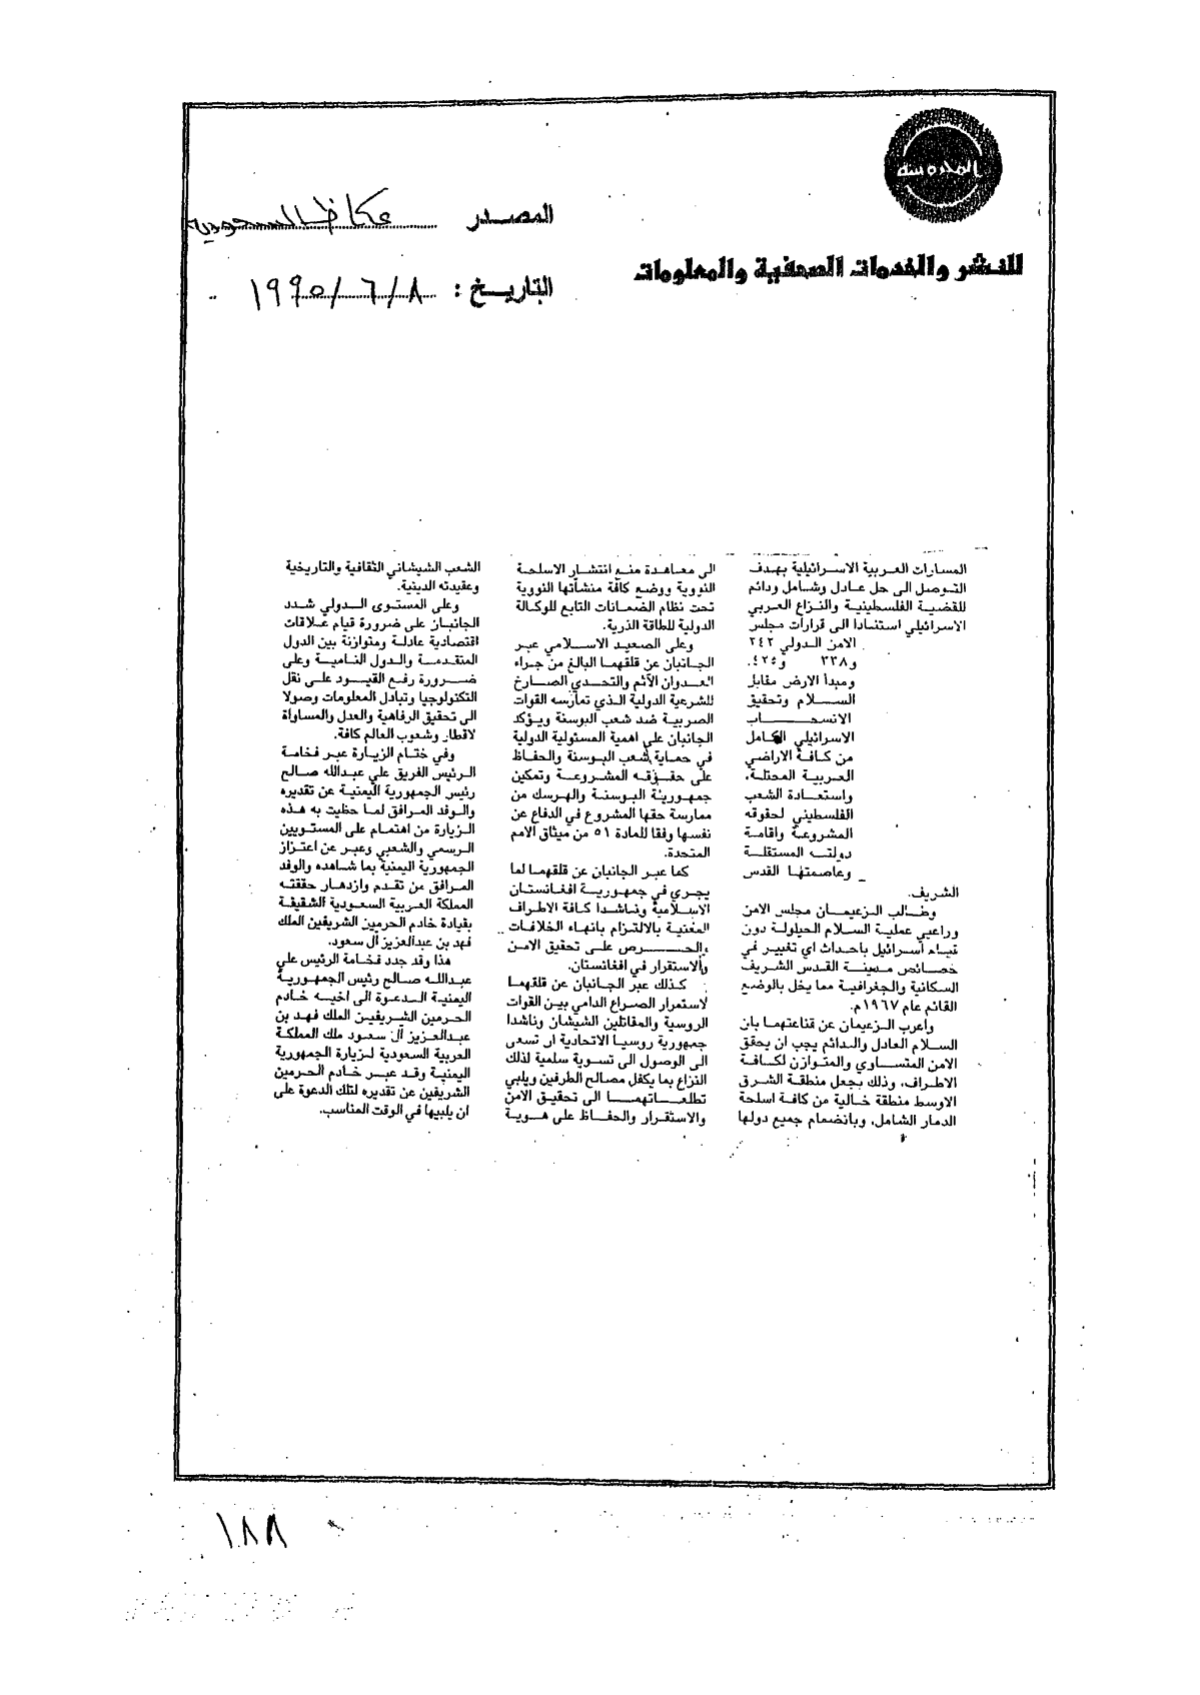 المحروسة
للنشر والخدمات الصحفية والمعلومات
المصدر عكاظ السعودية
التاريخ : ١٩٩٥/٦/٨
المسارات العربية الاسرائيلية بهدف
التوصل الى حل عادل وشامل ودائم
للقضية الفلسطينية والنزاع العربي
الاسرائيلي استنادا الى قرارات مجلس
الامن الدولي ٢٤٢
و٣٣٨ و٤٢٥.
ومبدأ الارض مقابل
السلام وتحقيق
الانسحاب
الاسرائيلي الكامل
من كافة الاراضي
العربية المحتلة.
واستعادة الشعب
الفلسطيني لحقوقه
المشروعة واقامة
دولته المستقلة
وعاصمتها القدس
الشريف.
وطالب الزعيمان مجلس الامن
وراعيي عملية السلام الحيلولة دون
قيام اسرائيل باحداث اي تغيير في
خصائص مدينة القدس الشريف
السكانية والجغرافية مما يخل بالوضع
القائم عام ١٩٦٧م.
واعرب الزعيمان عن قناعتهما بان
السلام العادل والدائم يجب ان يحقق
الامن المتساوي والمتوازن لكافة
الاطراف، وذلك بجعل منطقة الشرق
الاوسط منطقة خالية من كافة اسلحة
الدمار الشامل، وبانضمام جميع دولها
الى معاهدة منع انتشار الاسلحة
النووية ووضع كافة منشآتها النووية
تحت نظام الضمانات التابع للوكالة
الدولية للطاقة الذرية.
وعلى الصعيد الاسلامي عبر
الجانبان عن قلقهما البالغ من جراء
العدوان الآثم والتحدي الصارخ
للشرعية الدولية الذي تمارسه القوات
الصربية ضد شعب البوسنة ويؤكد
الجانبان على اهمية المسئولية الدولية
في حماية شعب البوسنة والحفاظ
على حقوقه المشروعة وتمكين
جمهورية البوسنة والهرسك من
ممارسة حقها المشروع في الدفاع عن
نفسها وفقا للمادة ٥١ من ميثاق الامم
المتحدة.
كما عبر الجانبان عن قلقهما لما
يجري في جمهورية افغانستان
الاسلامية وناشدا كافة الاطراف
المعنية بالالتزام بانهاء الخلافات
والحرص على تحقيق الامن
والاستقرار في افغانستان.
كذلك عبر الجانبان عن قلقهما
لاستمرار الصراع الدامي بين القوات
الروسية والمقاتلين الشيشان وناشدا
جمهورية روسيا الاتحادية ان تسعى
الى الوصول الى تسوية سلمية لذلك
النزاع بما يكفل مصالح الطرفين ويلبي
تطلعاتهما الى تحقيق الامن
والاستقرار والحفاظ على هوية
الشعب الشيشاني الثقافية والتاريخية
وعقيدته الدينية.
وعلى المستوى الدولي شدد
الجانبان على ضرورة قيام علاقات
اقتصادية عادلة ومتوازنة بين الدول
المتقدمة والدول النامية وعلى
ضرورة رفع القيود على نقل
التكنولوجيا وتبادل المعلومات وصولا
الى تحقيق الرفاهية والعدل والمساواة
لاقطار وشعوب العالم كافة.
وفي ختام الزيارة عبر فخامة
الرئيس الفريق علي عبدالله صالح
رئيس الجمهورية اليمنية عن تقديره
والوفد المرافق لما حظيت به هذه
الزيارة من اهتمام على المستويين
الرسمي والشعبي وعبر عن اعتزاز
الجمهورية اليمنية بما شاهده والوفد
المرافق من تقدم وازدهار حققته
المملكة العربية السعودية الشقيقة
بقيادة خادم الحرمين الشريفين الملك
فهد بن عبدالعزيز آل سعود.
هذا وقد جدد فخامة الرئيس علي
عبدالله صالح رئيس الجمهورية
اليمنية الدعوة الى اخيه خادم
الحرمين الشريفين الملك فهد بن
عبدالعزيز آل سعود ملك المملكة
العربية السعودية لزيارة الجمهورية
اليمنية وقد عبر خادم الحرمين
الشريفين عن تقديره لتلك الدعوة على
ان يلبيها في الوقت المناسب.
١٨٨